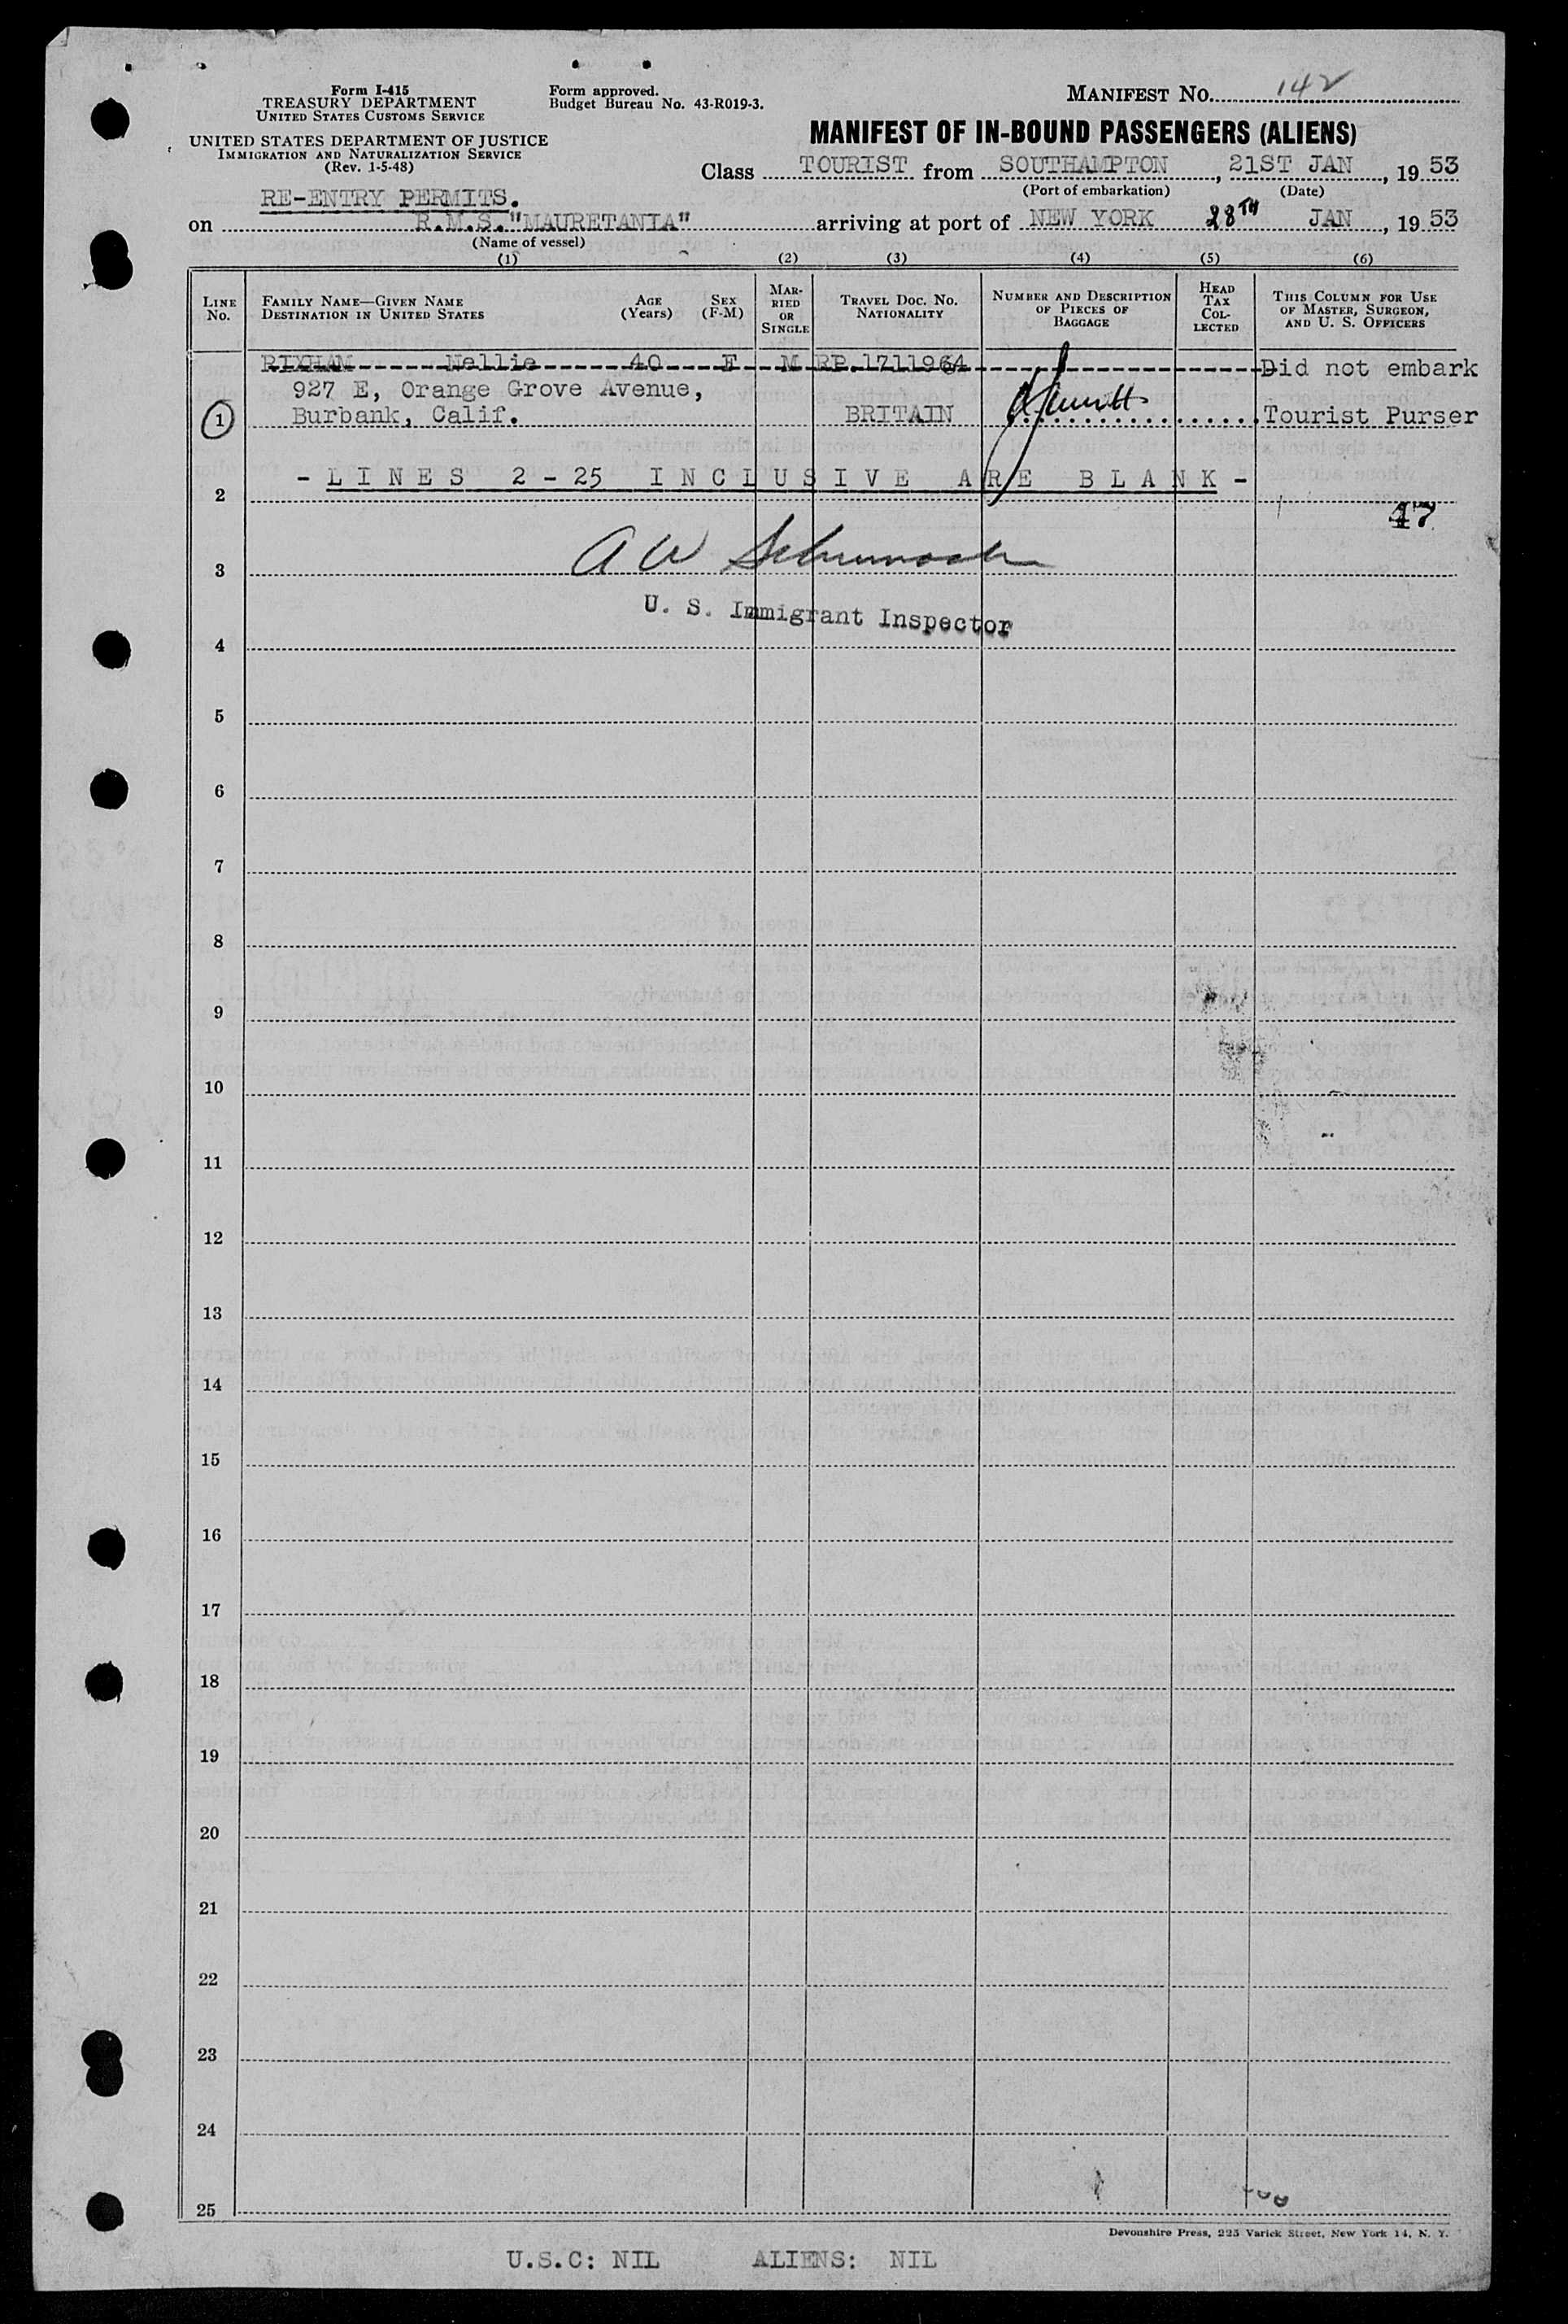 Form I-415
TREASURY DEPARTMENT
UNITED STATES CUSTOMS SERVICE
UNITED STATES DEPARTMENT OF JUSTICE
IMMIGRATION AND NATURALIZATION SERVICE
(Rev. 1-5-48)
Form approved.
Budget Bureau No. 43-R019-3.
MANIFEST NO. 142
MANIFEST OF IN-BOUND PASSENGERS (ALIENS)
Class TOURIST from SOUTHAMPTON, 21ST JAN, 19 53
(Port of embarkation) (Date)
RE-ENTRY PERMITS.
on R.M.S."MAURETANIA" arriving at port of NEW YORK 28TH JAN, 19 53
(Name of vessel)
(1) (2) (3) (4) (5) (6)
LINE NO.
FAMILY NAME—GIVEN NAME AGE SEX
DESTINATION IN UNITED STATES (YEARS) (F-M)
MAR-
RIED
OR
SINGLE
TRAVEL DOC. NO.
NATIONALITY
NUMBER AND DESCRIPTION
OF PIECES OF
BAGGAGE
HEAD
TAX
COL-
LECTED
THIS COLUMN FOR USE
OF MASTER, SURGEON,
AND U. S. OFFICERS
RIXHAM Nellie 40 F M RP.1711964 Did not embark
927 E, Orange Grove Avenue,
1 Burbank, Calif. BRITAIN Tourist Purser
- LINES 2-25 INCLUSIVE ARE BLANK -
2
47
A W
3
U. S. Immigrant Inspector
4
5
6
7
8
9
10
11
12
13
14
15
16
17
18
19
20
21
22
23
24
25
Devonshire Press, 225 Varick Street, New York 14, N. Y.
U.S.C: NIL ALIENS: NIL